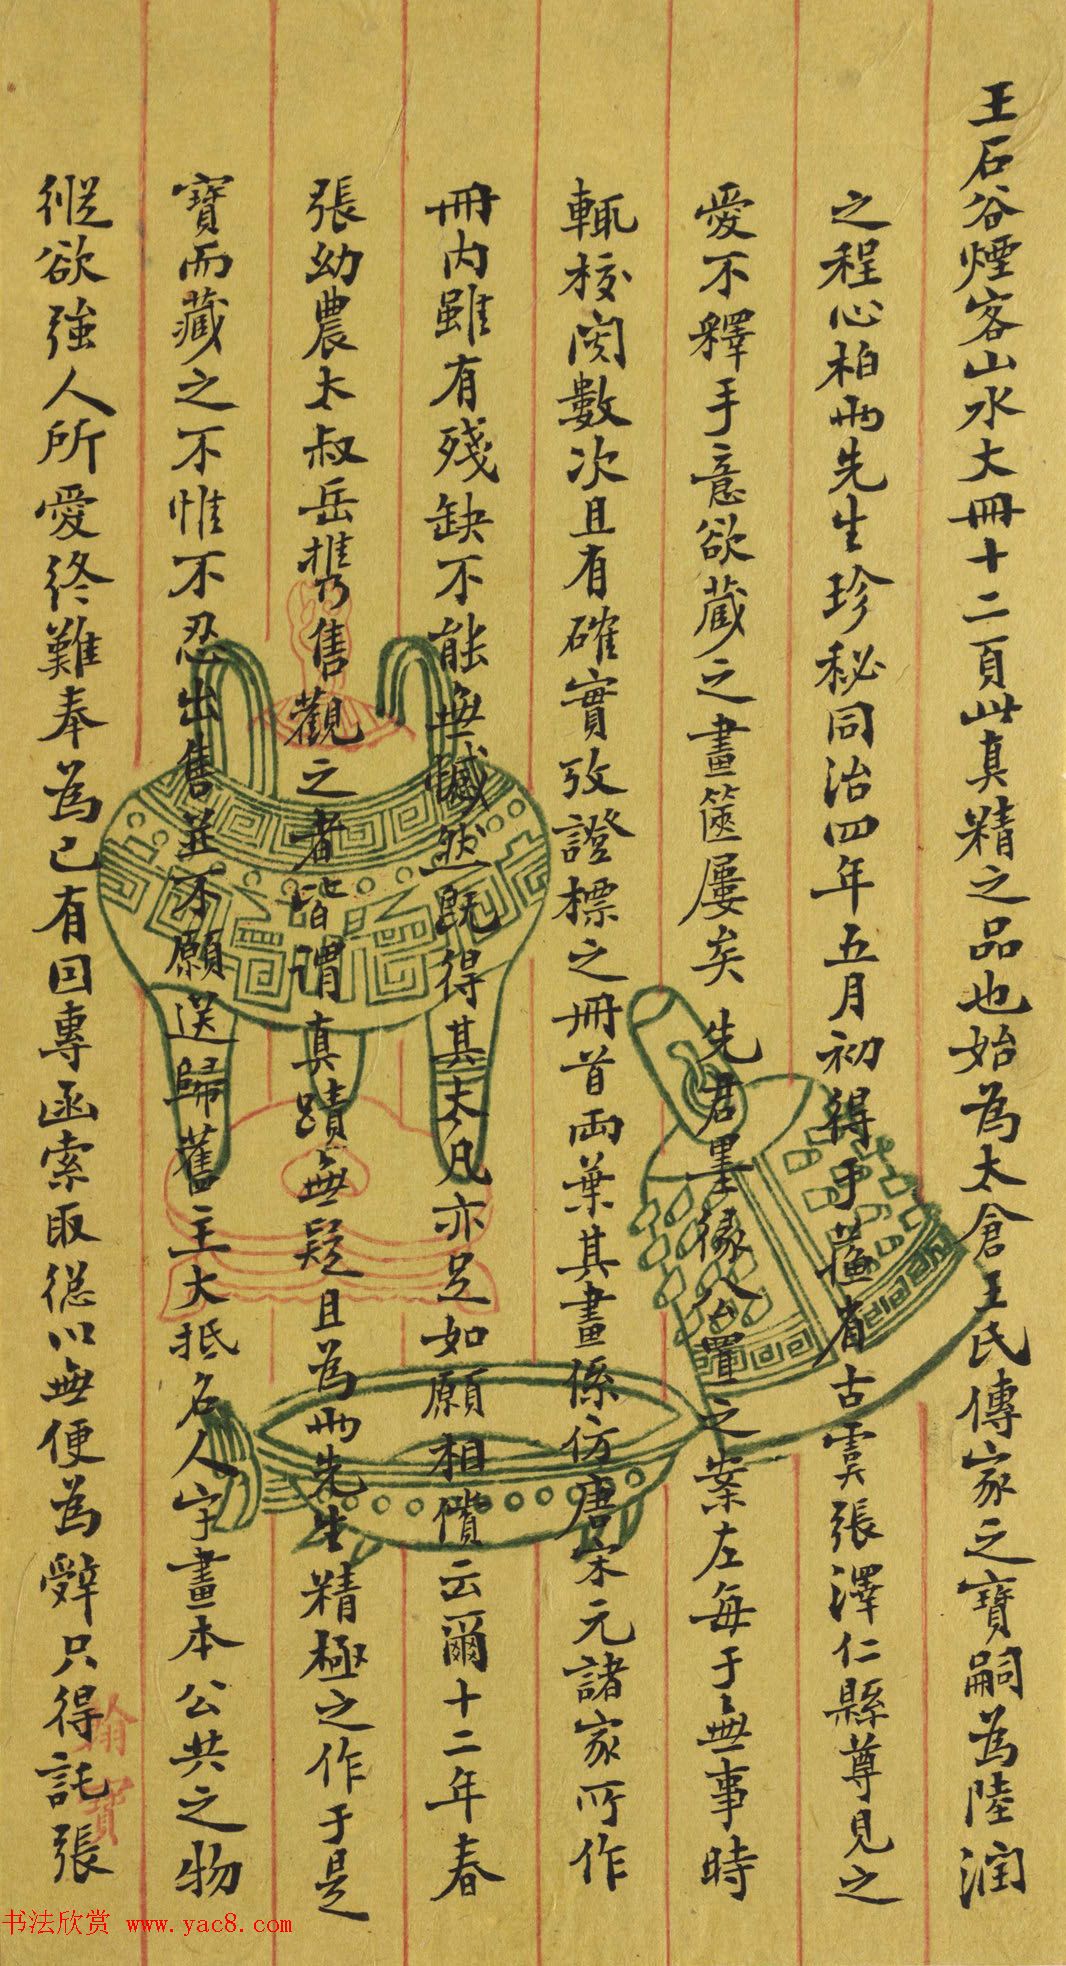 王石谷煙客山水大冊十二頁此真精之品也始為太倉王氏傳家之寶嗣為陸潤
之程心柏兩先生珍秘同治四年五月初得手蘓省古雲張澤仁縣尊見之
愛不釋手意欲藏之畫篋屢矣先君墨緣公置之案左每于無事時
輒校閱數次且有確實攷證標之冊首兩葉其畫係仿唐宋元諸家所作
冊內雖有殘缺不能無憾然既得其大凡亦足如願相償云爾十二年春
張幼農太叔岳携售觀之者皆謂真蹟無疑且為兩先生精極之作于是
寶而藏之不惟不忍出售並不願送歸舊主大抵名人字畫本公共之物
縱欲強人所愛終難奉為己有回專函索取從以無便為辭只得託張
翰寶
书法欣赏 www.yac8.com